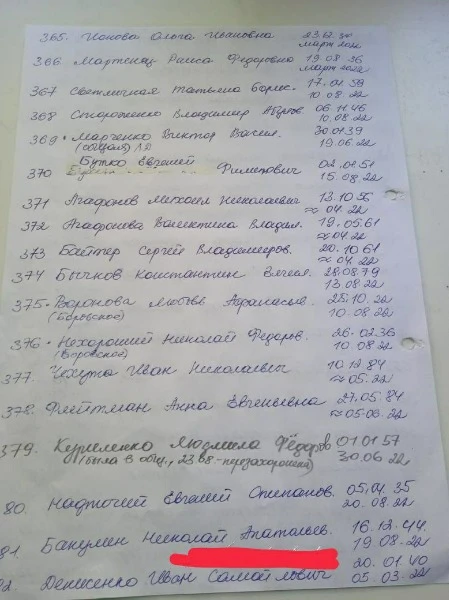 365. Ионова Ольга Ивановна 23.12.
март 2022
366 Мартенец Раиса Федоровна 19.08 36
март 2022
367 Светличная Татьяна Борис. 17.01.59
10.08.22
368 Владимир 06.11.46
10.08.22
369 • Марченко Виктор Васил. 30.01.39
19.06.22
Бутко Евгений
370 Филипович 02.02.51
15.08.22
371 Агафонов Михаил Николаевич 13.10 56
≈ 04.22
372 Агафонова Валентина Владил. 19.05.61
≈04.22
373 Байтлер Сергей Владимиров. 20.10 61
≈ 04.22
374 Бычков Константин 28.08.79
13.08.22
375 • Воронова Любовь Афанасьев. 10.22
(Боровское) 10.08.22
376 • Нехороший Николай Федоров. 26.02.36
(Боровское) 10.08.22
377. Чехута Иван Николаевич 10.12.84
≈05.22
378. Флейтман Анна Евгеньевна 27.05.84
≈05.08.22
379. Куриленко Людмила Фёдоров 01.01 57
(была в общ., 23.08.-перезахоронена) 30.06 22
80. Надточий Евгений Степанов. 05.04.35
20.08.22
81. Бакумен Николай Анатольев. 16.12.44.
19.08.22
82. Денисенко Иван Самойлович 20.01.40
05.03.22